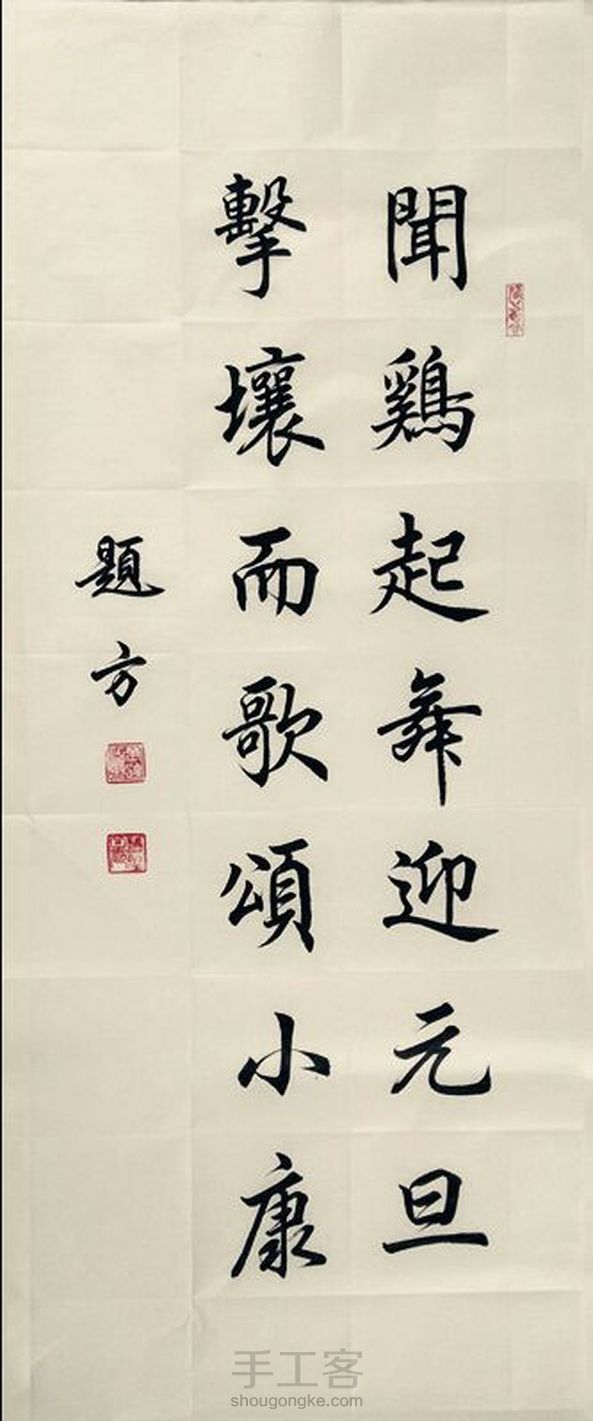 聞鷄起舞迎元旦
擊壤而歌頌小康
題方
手工客
shougongke.com